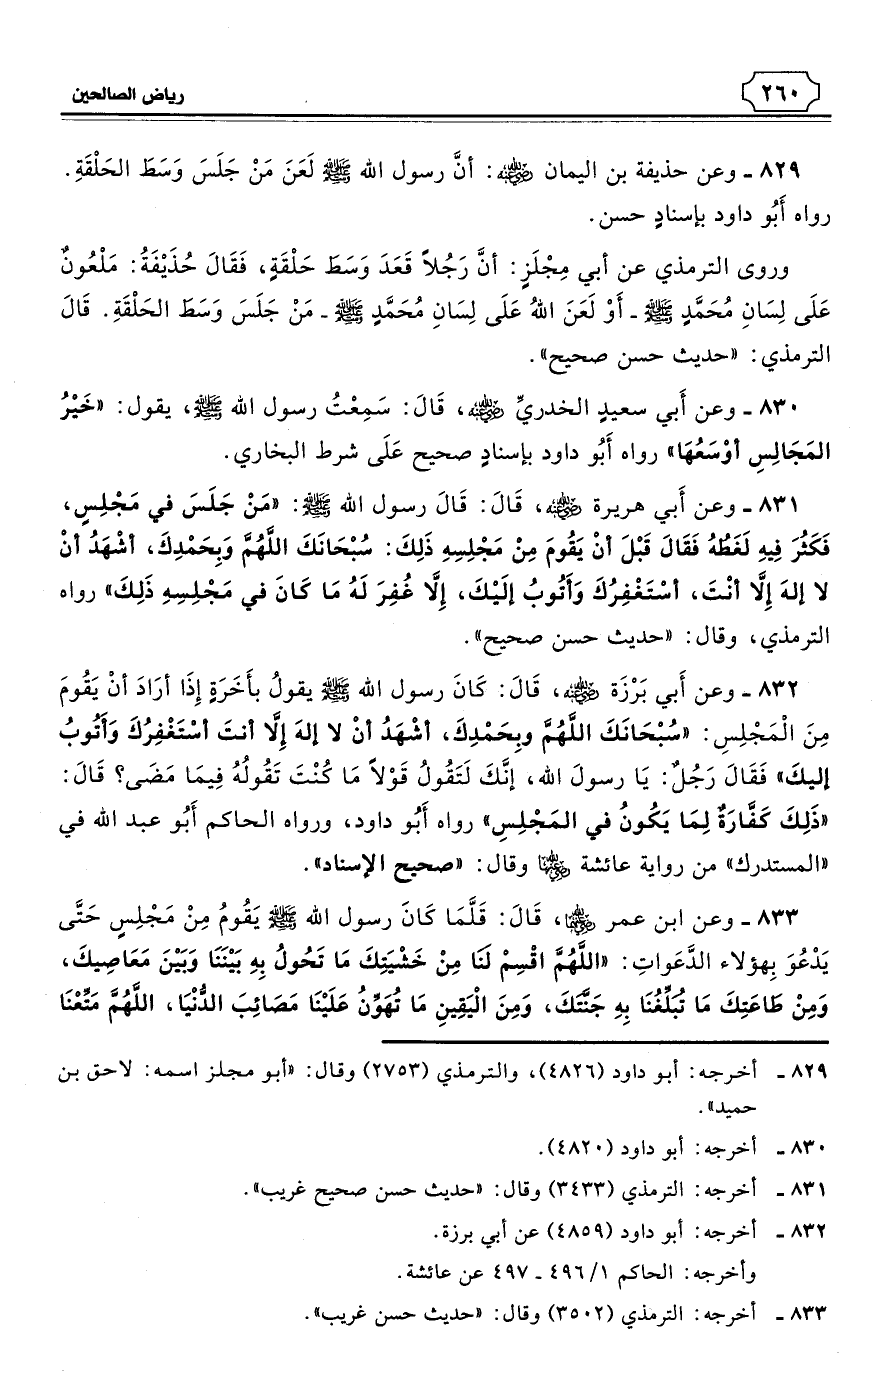 ٢٦٠ رياض الصالحين
٨٢٩ ـ وعن حذيفة بن اليمان رضي الله عنه: أنَّ رسول الله ﷺ لَعَنَ مَنْ جَلَسَ وَسَطَ الحَلْقَةِ.
رواه أَبُو داود بإسنادٍ حسن.
وروى الترمذي عن أبي مِجْلَزٍ: أنَّ رَجُلاً قَعَدَ وَسَطَ حَلْقَةٍ، فَقَالَ حُذَيْفَةُ: مَلْعُونٌ
عَلَى لِسَانِ مُحَمَّدٍ ﷺ ـ أَوْ لَعَنَ اللهُ عَلَى لِسَانِ مُحَمَّدٍ ﷺ ـ مَنْ جَلَسَ وَسَطَ الحَلْقَةِ. قَالَ
الترمذي: «حديث حسن صحيح».
٨٣٠ ـ وعن أَبي سعيدٍ الخدريِّ رضي الله عنه، قَالَ: سَمِعْتُ رسول الله ﷺ، يقول: «خَيْرُ
المَجَالِسِ أوْسَعُهَا» رواه أَبُو داود بإسنادٍ صحيح عَلَى شرط البخاري.
٨٣١ ـ وعن أَبي هريرة رضي الله عنه، قَالَ: قَالَ رسول الله ﷺ: «مَنْ جَلَسَ في مَجْلِسٍ،
فَكَثُرَ فِيهِ لَغَطُهُ فَقَالَ قَبْلَ أنْ يَقُومَ مِنْ مَجْلِسِهِ ذَلِكَ: سُبْحَانَكَ اللَّهُمَّ وَبِحَمْدِكَ، أشْهَدُ أنْ
لا إلهَ إلَّا أنْتَ، أسْتَغْفِرُكَ وَأتُوبُ إلَيْكَ، إلَّا غُفِرَ لَهُ مَا كَانَ في مَجْلِسِهِ ذَلِكَ» رواه
الترمذي، وقال: «حديث حسن صحيح».
٨٣٢ ـ وعن أَبي بَرْزَة رضي الله عنه، قَالَ: كَانَ رسول الله ﷺ يقولُ بأَخَرَةٍ إذَا أرَادَ أنْ يَقُومَ
مِنَ الْمَجْلِسِ: «سُبْحَانَكَ اللَّهُمَّ وبِحَمْدِكَ، أشْهَدُ أنْ لا إلهَ إلَّا أنتَ أسْتَغْفِرُكَ وَأتُوبُ
إليكَ» فَقَالَ رَجُلٌ: يَا رسولَ الله، إنَّكَ لَتَقُولُ قَوْلاً مَا كُنْتَ تَقُولُهُ فِيمَا مَضَى؟ قَالَ:
«ذَلِكَ كَفَّارَةٌ لِمَا يَكُونُ في المَجْلِسِ» رواه أَبُو داود، ورواه الحاكم أَبُو عبد الله في
«المستدرك» من رواية عائشة رضي الله عنها وقال: «صحيح الإسناد».
٨٣٣ ـ وعن ابن عمر رضي الله عنهما، قَالَ: قَلَّمَا كَانَ رسول الله ﷺ يَقُومُ مِنْ مَجْلِسٍ حَتَّى
يَدْعُوَ بِهؤلاء الدَّعَواتِ: «اللَّهُمَّ اقْسِمْ لَنَا مِنْ خَشْيَتِكَ مَا تَحُولُ بِهِ بَيْنَنَا وَبَيْنَ مَعَاصِيكَ،
وَمِنْ طَاعَتِكَ مَا تُبَلِّغُنَا بِهِ جَنَّتَكَ، وَمِنَ الْيَقِينِ مَا تُهَوِّنُ عَلَيْنَا مَصَائِبَ الدُّنْيَا، اللَّهُمَّ مَتِّعْنَا
٨٢٩ ـ أخرجه: أبو داود (٤٨٢٦)، والترمذي (٢٧٥٣) وقال: «أبو مجلز اسمه: لاحق بن
حميد».
٨٣٠ ـ أخرجه: أبو داود (٤٨٢٠).
٨٣١ ـ أخرجه: الترمذي (٣٤٣٣) وقال: «حديث حسن صحيح غريب».
٨٣٢ ـ أخرجه: أبو داود (٤٨٥٩) عن أبي برزة.
وأخرجه: الحاكم ١/ ٤٩٦ ـ ٤٩٧ عن عائشة.
٨٣٣ ـ أخرجه: الترمذي (٣٥٠٢) وقال: «حديث حسن غريب».